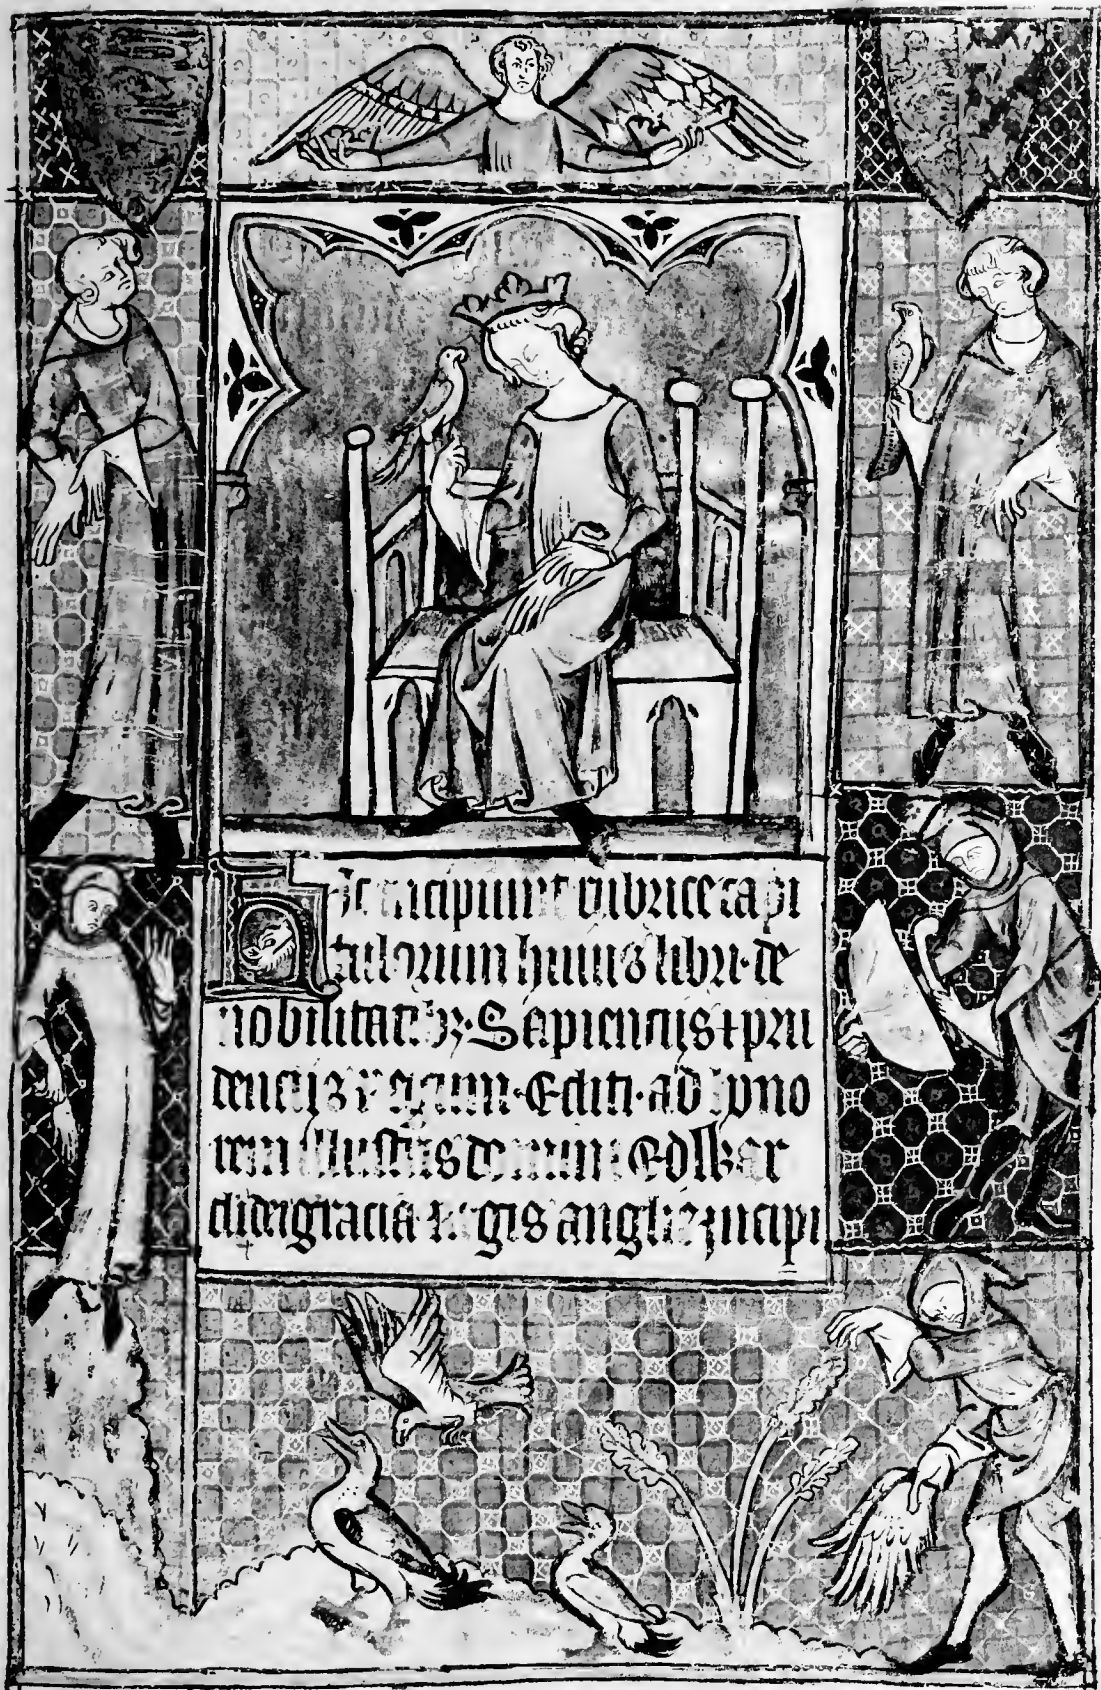 Hic incipiunt rubrice capi
tulorum huius libri · de
nobilitatibȝ · Sapiencijs ⁊ pru
dencijs regum · Editi · ad hono
rem illustris domini Edwar
di dei gracia Regis anglie incipi